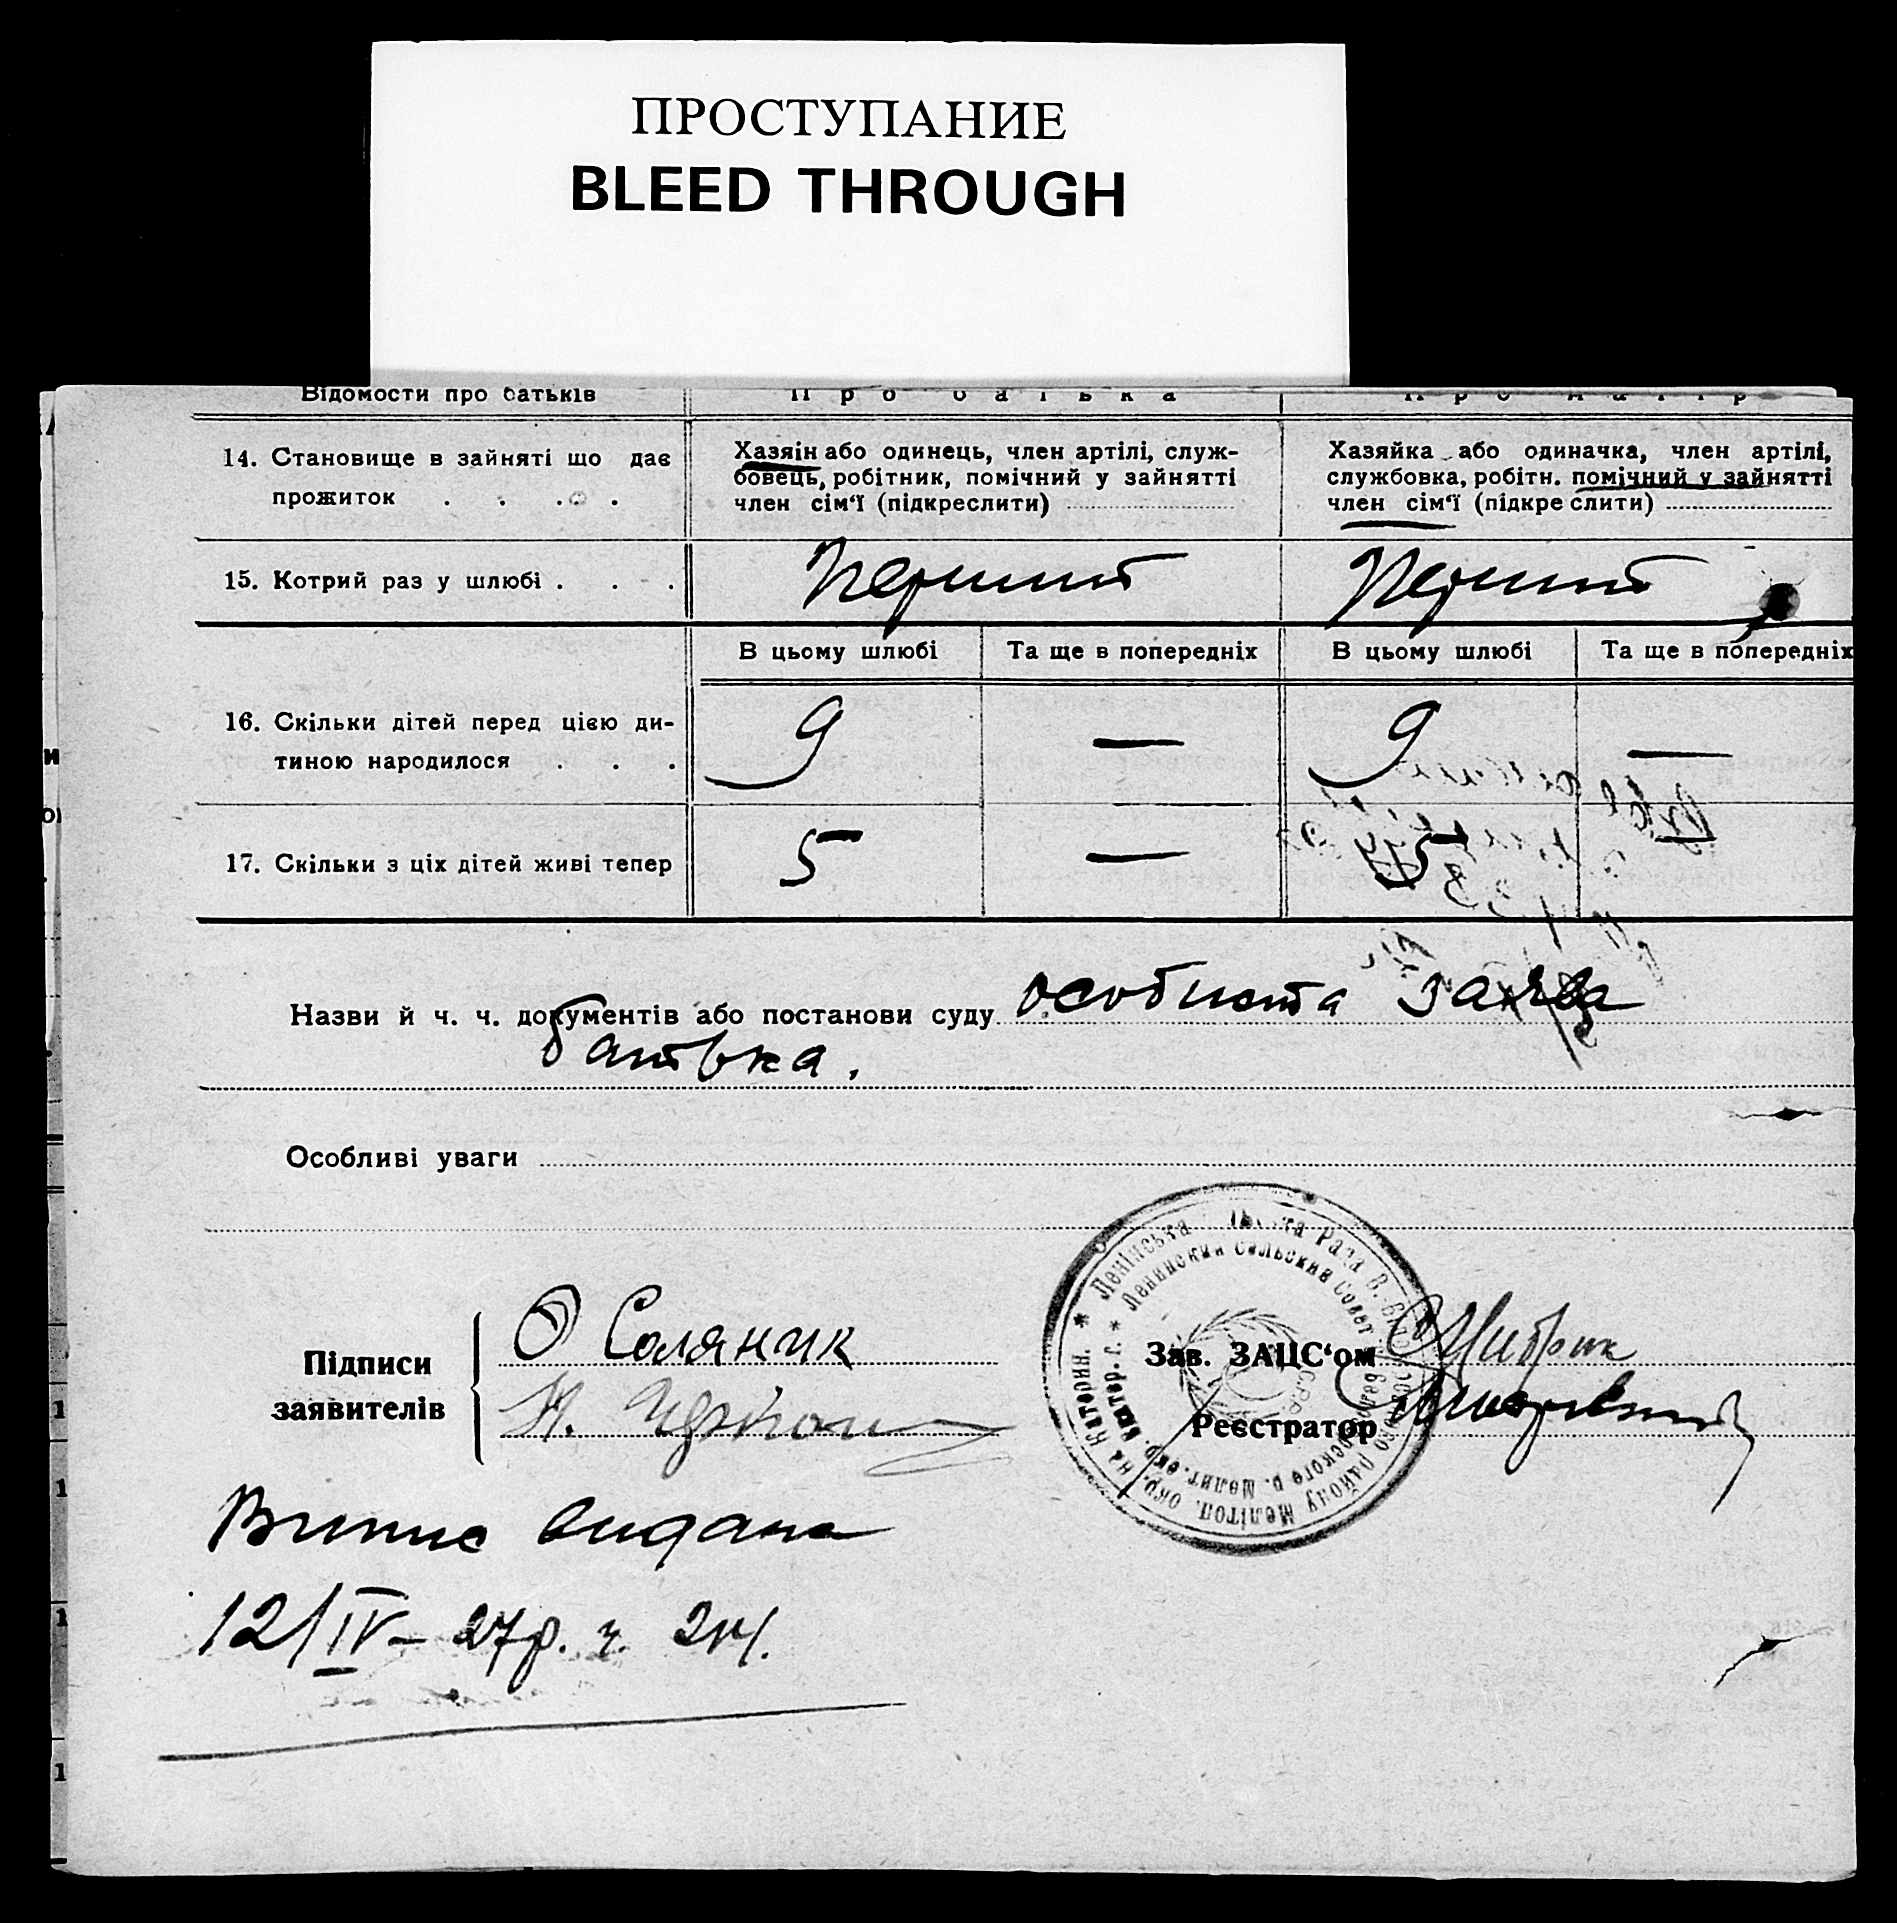 ПРОСТУПАНИЕ
BLEED THROUGH
Відомости про батьків
Про батька
Про матір
14. Становище в зайняті що дає
прожиток . . . .
Хазяін або одинець, член артілі, служ-
бовець, робітник, помічний у зайнятті
член сім‘ї (підкреслити)
Хазяйка або одиначка, член артілі,
службовка, робітн. помічний у зайнятті
член сім‘ї (підкреслити)
15. Котрий раз у шлюбі . . .
Перший
Перший
В цьому шлюбі
Та ще в попередніх
В цьому шлюбі
Та ще в попередніх
16. Скільки дітей перед цією ди-
тиною народилося . . .
9
—
9
—
17. Скільки з ціх дітей живі тепер
5
—
5
—
Назви й ч. ч. документів або постанови суду особиста заява
батька.
Особливі уваги
Підписи
заявителів
О Соляник
Н.
Зав. ЗАЦС‘ом
Реєстратор
* Ленінська Рада
* Ленинский Сельский Совет
району Мелітоп. окр. на Катерин.
р. Мелит. окр. Екатер. г.
Випис видана
12/IV – 27р. ч. 24.